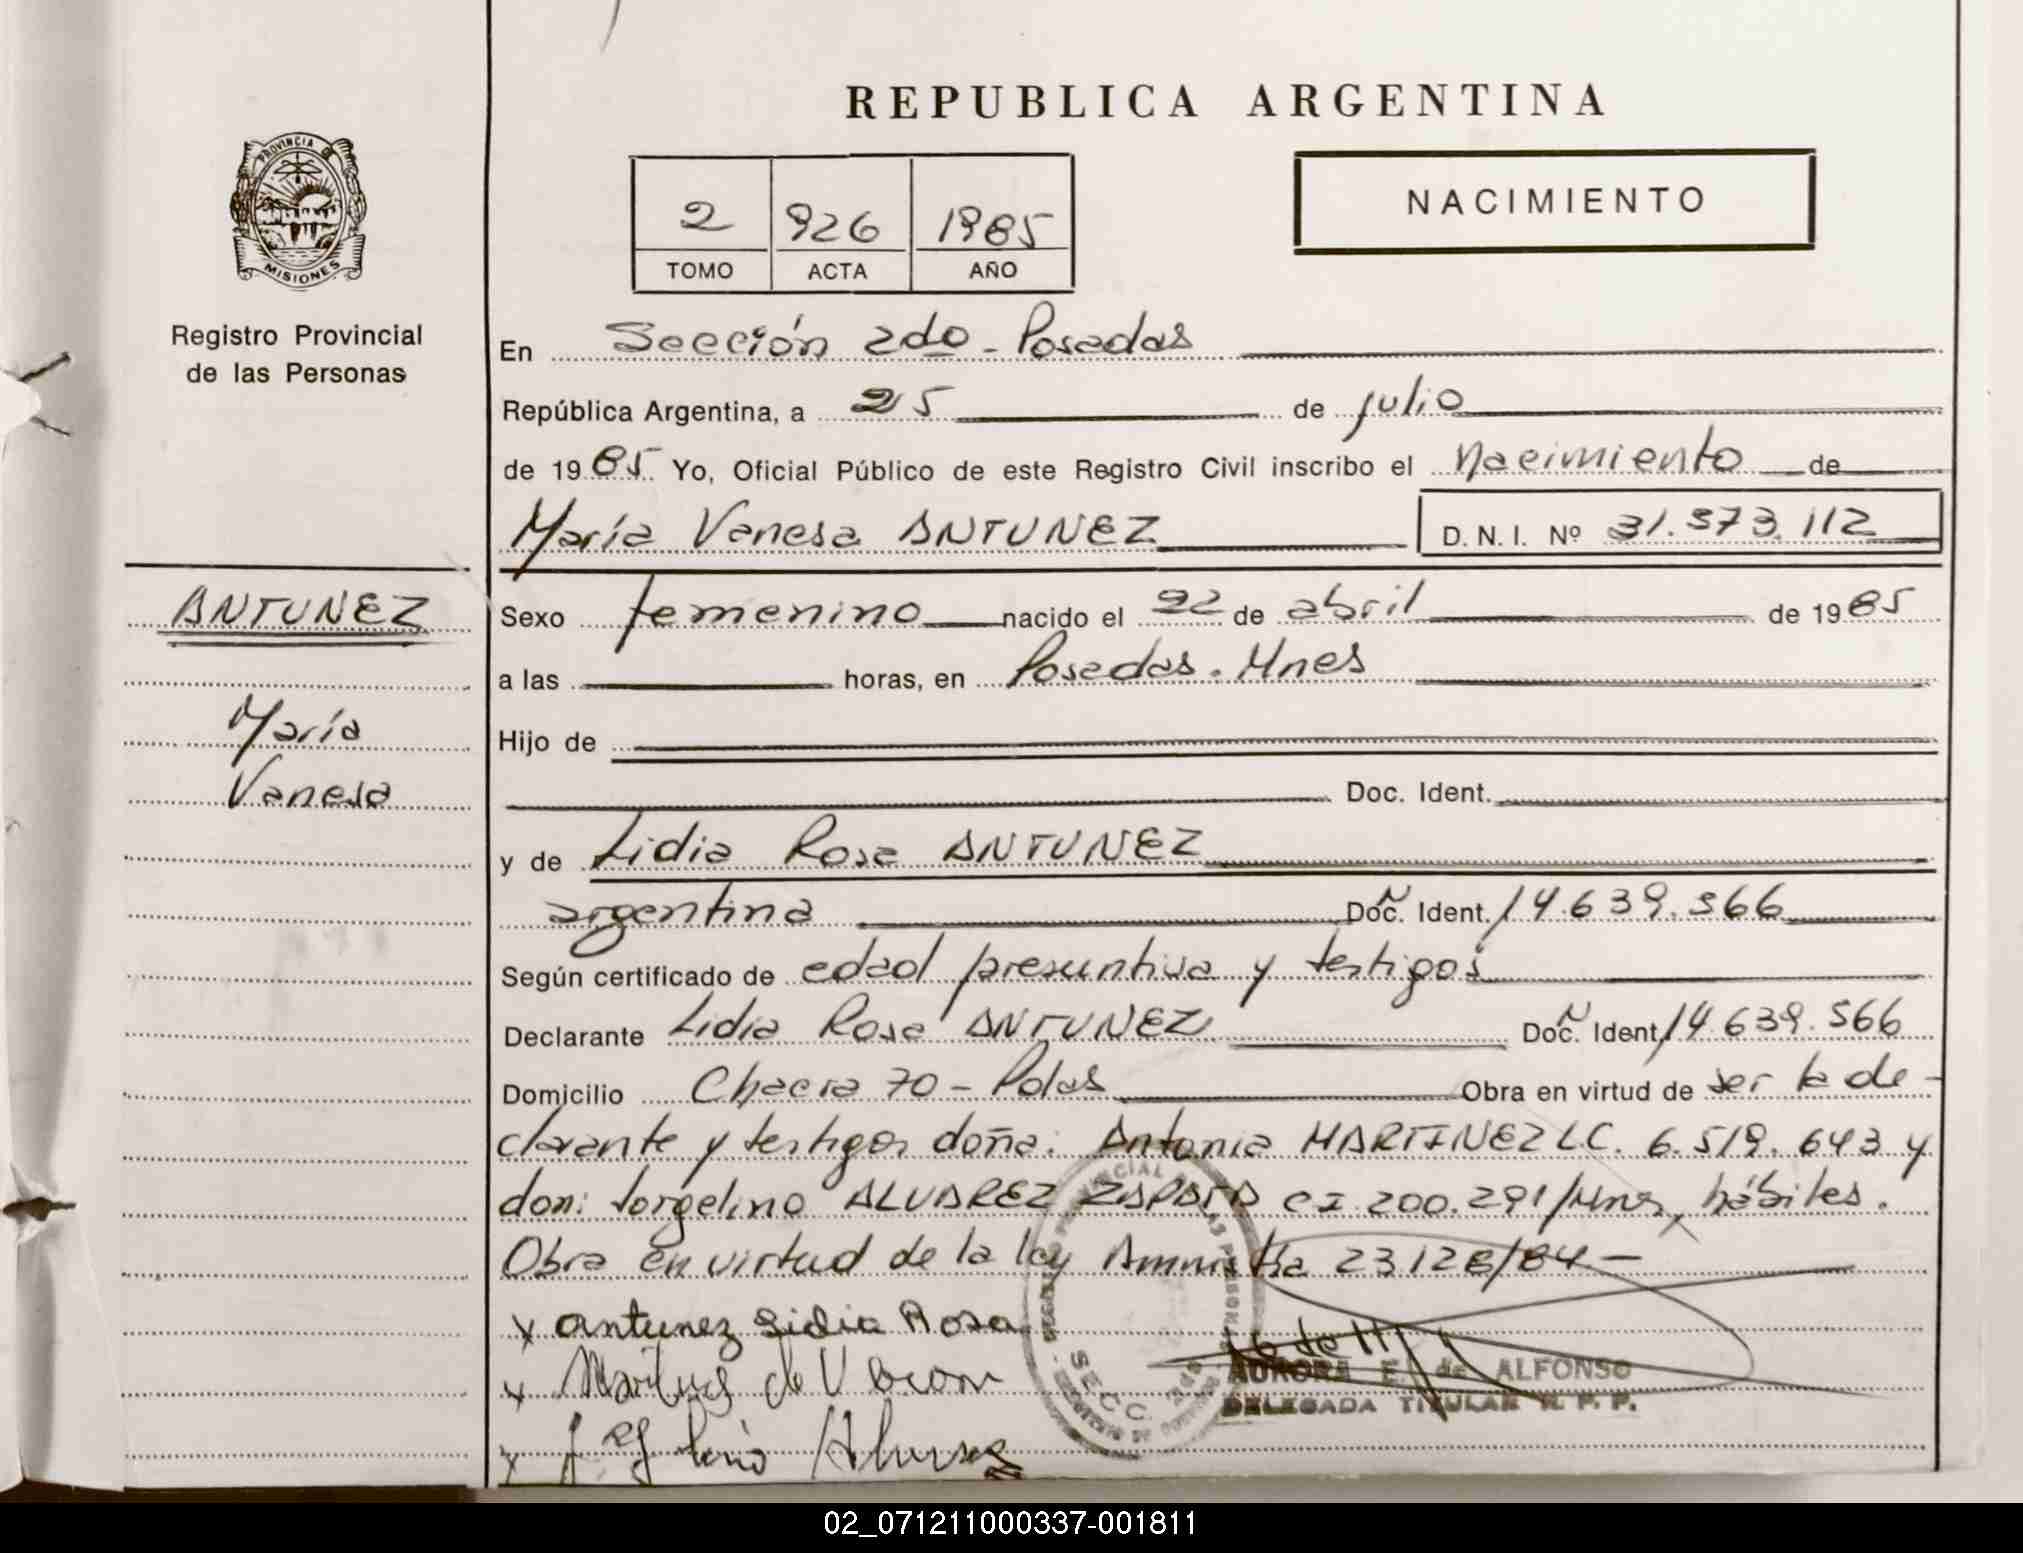 REPUBLICA ARGENTINA
PROVINCIA DE
MISIONES
Registro Provincial
de las Personas
2 926 1985
TOMO ACTA AÑO
NACIMIENTO
En Sección 2do - Posadas
República Argentina, a 25 de julio
de 1985 Yo, Oficial Público de este Registro Civil inscribo el Nacimiento de
María Vanesa ANTUNEZ D. N. I. Nº 31.573.112
ANTUNEZ
María
Vanesa
Sexo femenino nacido el 22 de abril de 1985
a las horas, en Posadas. Mnes
Hijo de
Doc. Ident.
y de Lidia Rosa ANTUNEZ
argentina Doc. Ident. 14.639.566
Según certificado de edad presuntiva y testigos
Declarante Lidia Rosa ANTUNEZ Doc. Ident. 14.639.566
Domicilio Chacra 70 - Pdas Obra en virtud de ser la de-
clarante y testigos doña: Antonia MARTINEZ LC. 6.519.643 y
don: Jorgelino ALVAREZ ZAPATA CI 200.291/Mnes, hábiles.
Obra en virtud de la ley Amnistía 23.128/84 -
x Antunez Lidia Rosa
x
x
SECC. 2da
AURORA E. de ALFONSO
DELEGADA TITULAR R. P. P.
02_071211000337-001811